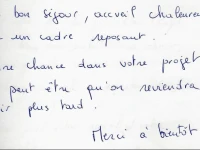 bon séjour, accueil chaleureu
un cadre reposant.
ne chance dans votre projet
peut être qu'on reviendra
ir plus tard.
Merci à bientôt